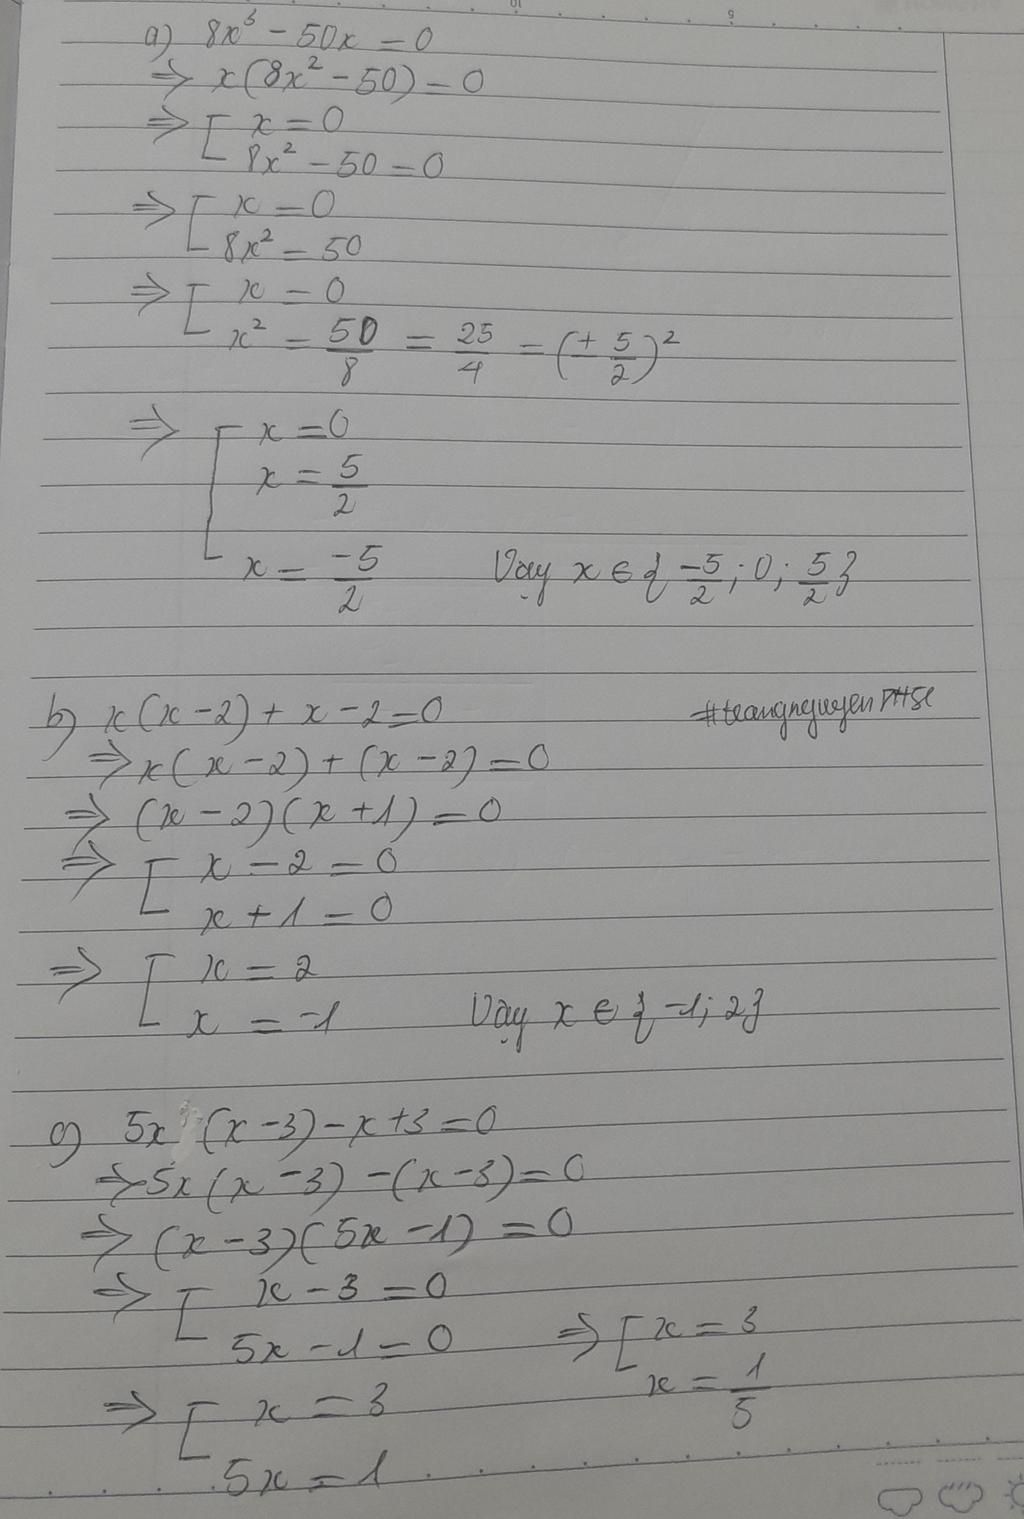 a) 8x³ - 50x = 0
⇒ x(8x² - 50) = 0
⇒ [ x = 0
8x² - 50 = 0
⇒ [ x = 0
8x² = 50
⇒ [ x = 0
x² = 50/8 = 25/4 = (± 5/2)²
⇒ [ x = 0
x = 5/2
x = -5/2 Vậy x ∈ { -5/2 ; 0 ; 5/2 }
b) x(x-2) + x - 2 = 0
⇒ x(x-2) + (x-2) = 0
⇒ (x-2)(x+1) = 0
⇒ [ x - 2 = 0
x + 1 = 0
⇒ [ x = 2
x = -1 Vậy x ∈ { -1; 2 }
c) 5x (x-3) - x + 3 = 0
⇒ 5x(x-3) - (x-3) = 0
⇒ (x-3)(5x-1) = 0
⇒ [ x - 3 = 0
5x - 1 = 0 ⇒ [ x = 3
x = 1/5
⇒ [ x = 3
5x = 1